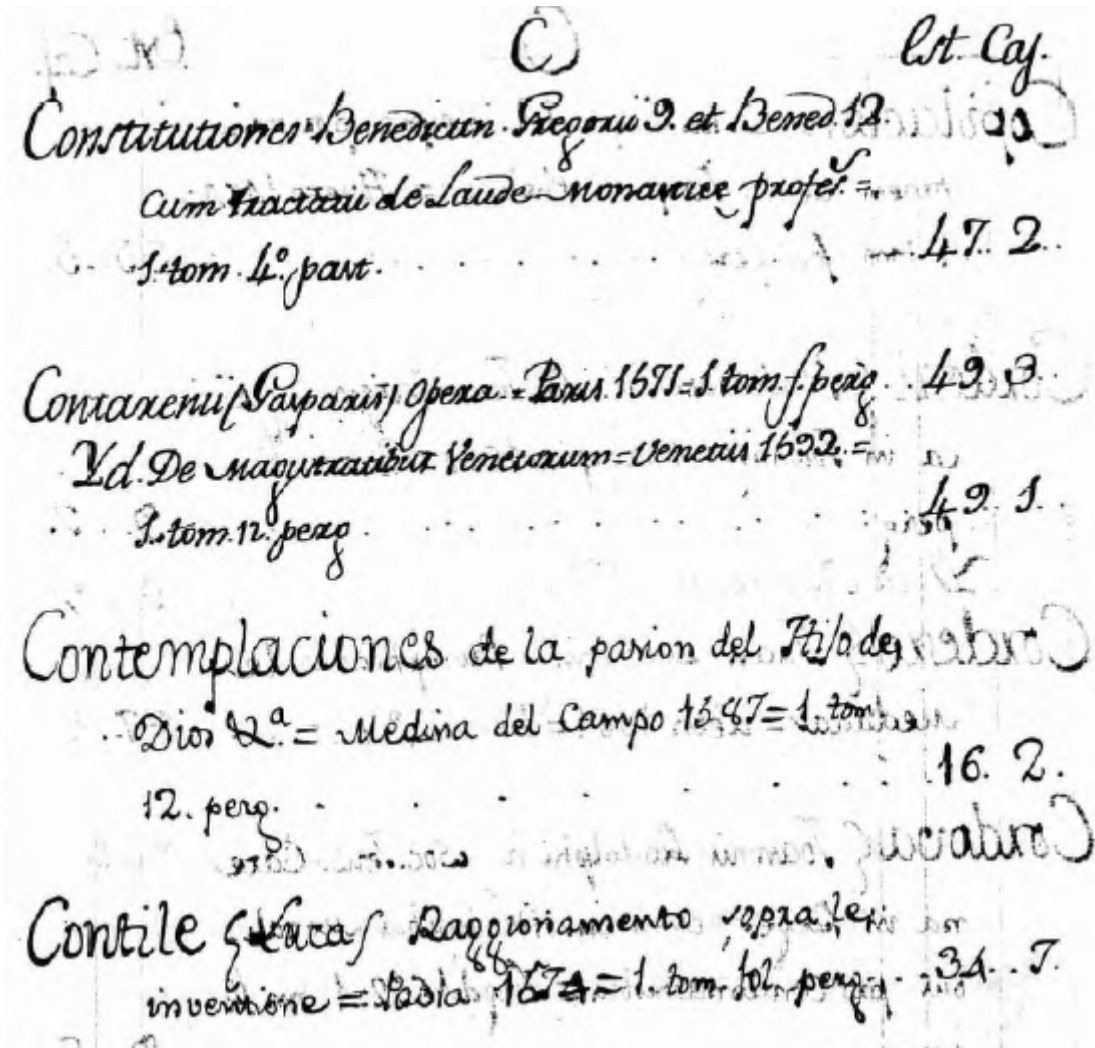 C Est. Caj.
Constitutiones Benedictin. Gregorii 9. et Bened. 12.
cum tractatu de Laude monasticae profes. =
1. tom. 4.º past. . . . . . . . 47. 2.
Contarenii (Gasparis) Opera = Paris 1571 = 1. tom. f. perg. . 49. 3.
Yd. De Magistratibus Venetorum = Venetiis 1592. =
1. tom. 12.º perg. . . . . . . . 49. 1.
Contemplaciones de la pasion del Hijo de
Dios &.ª = Medina del Campo 1587 = 1. tom
12. perg. . . . . . . . 16. 2.
Contile (Luca) Raggionamento sopra le
inventione = Pavia 1574 = 1. tom. fol. perg. . . 34. . 7.